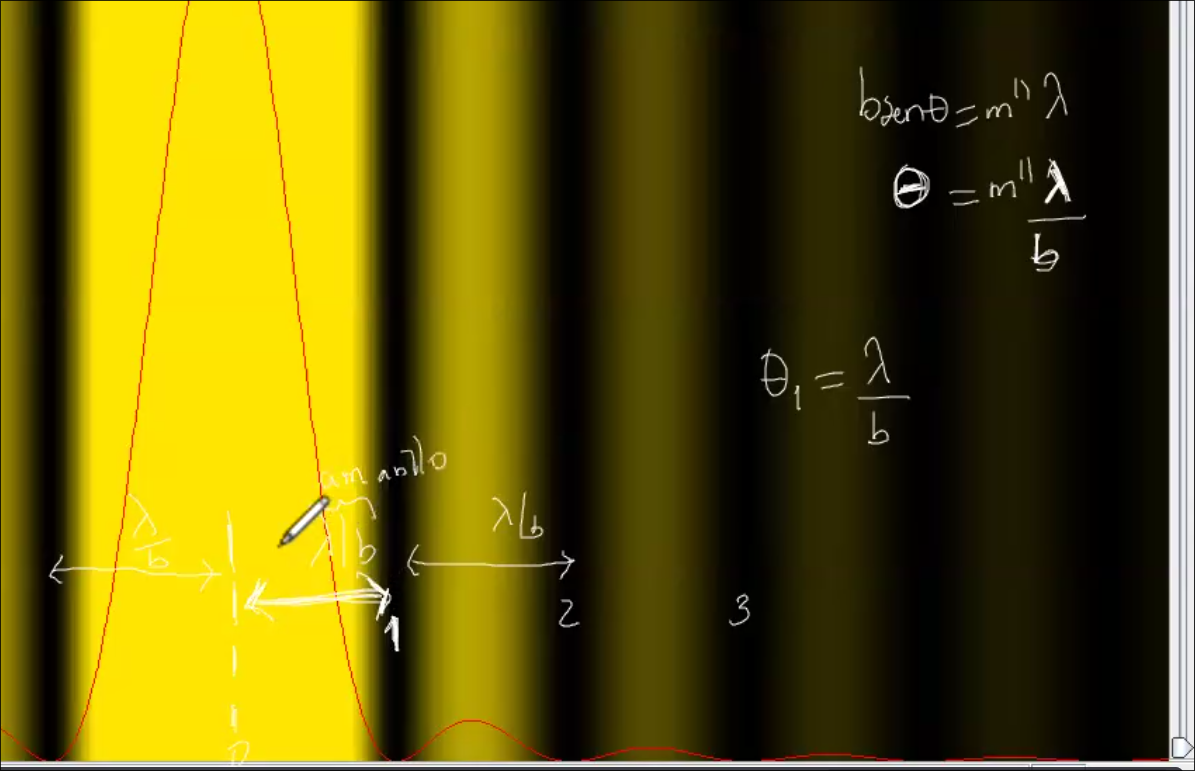 bsenθ = m'' λ
θ = m'' λ/b
θ₁ = λ/b
amarillo
λ/b
λ/b
λ|b
1
2
3
0